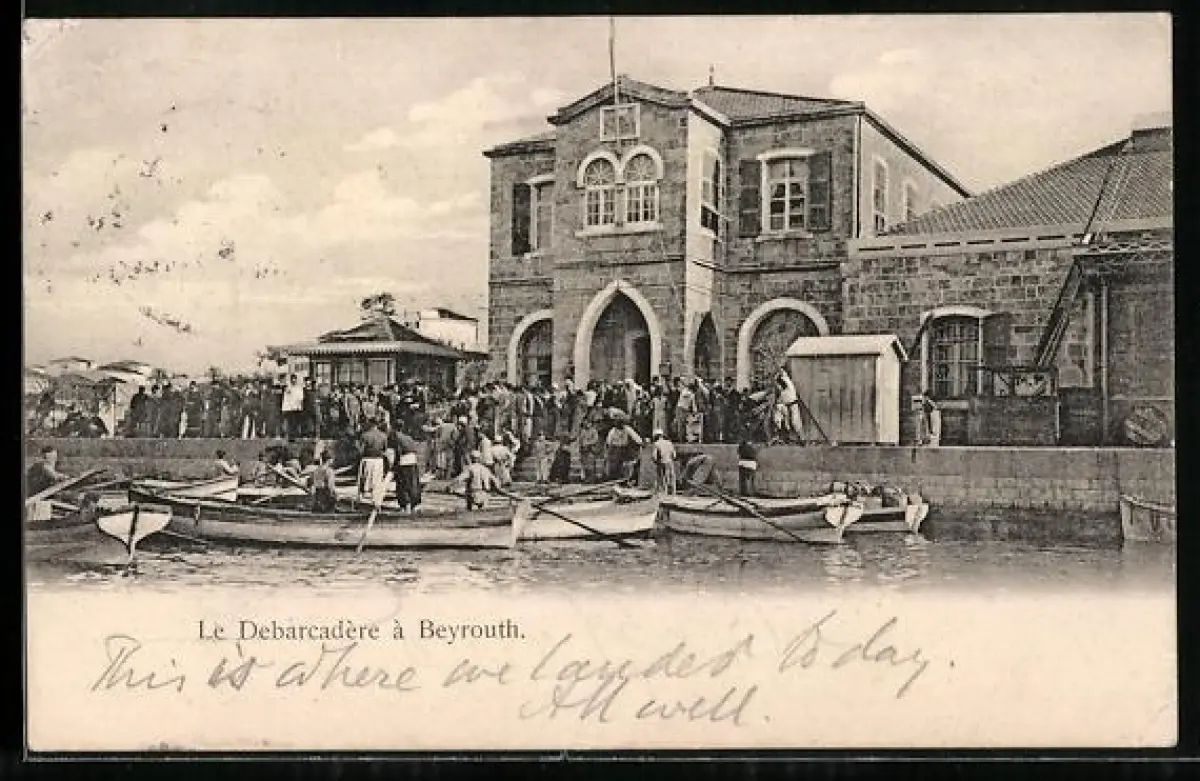 Le Debarcadère à Beyrouth.
This is where we landed today.
All well.